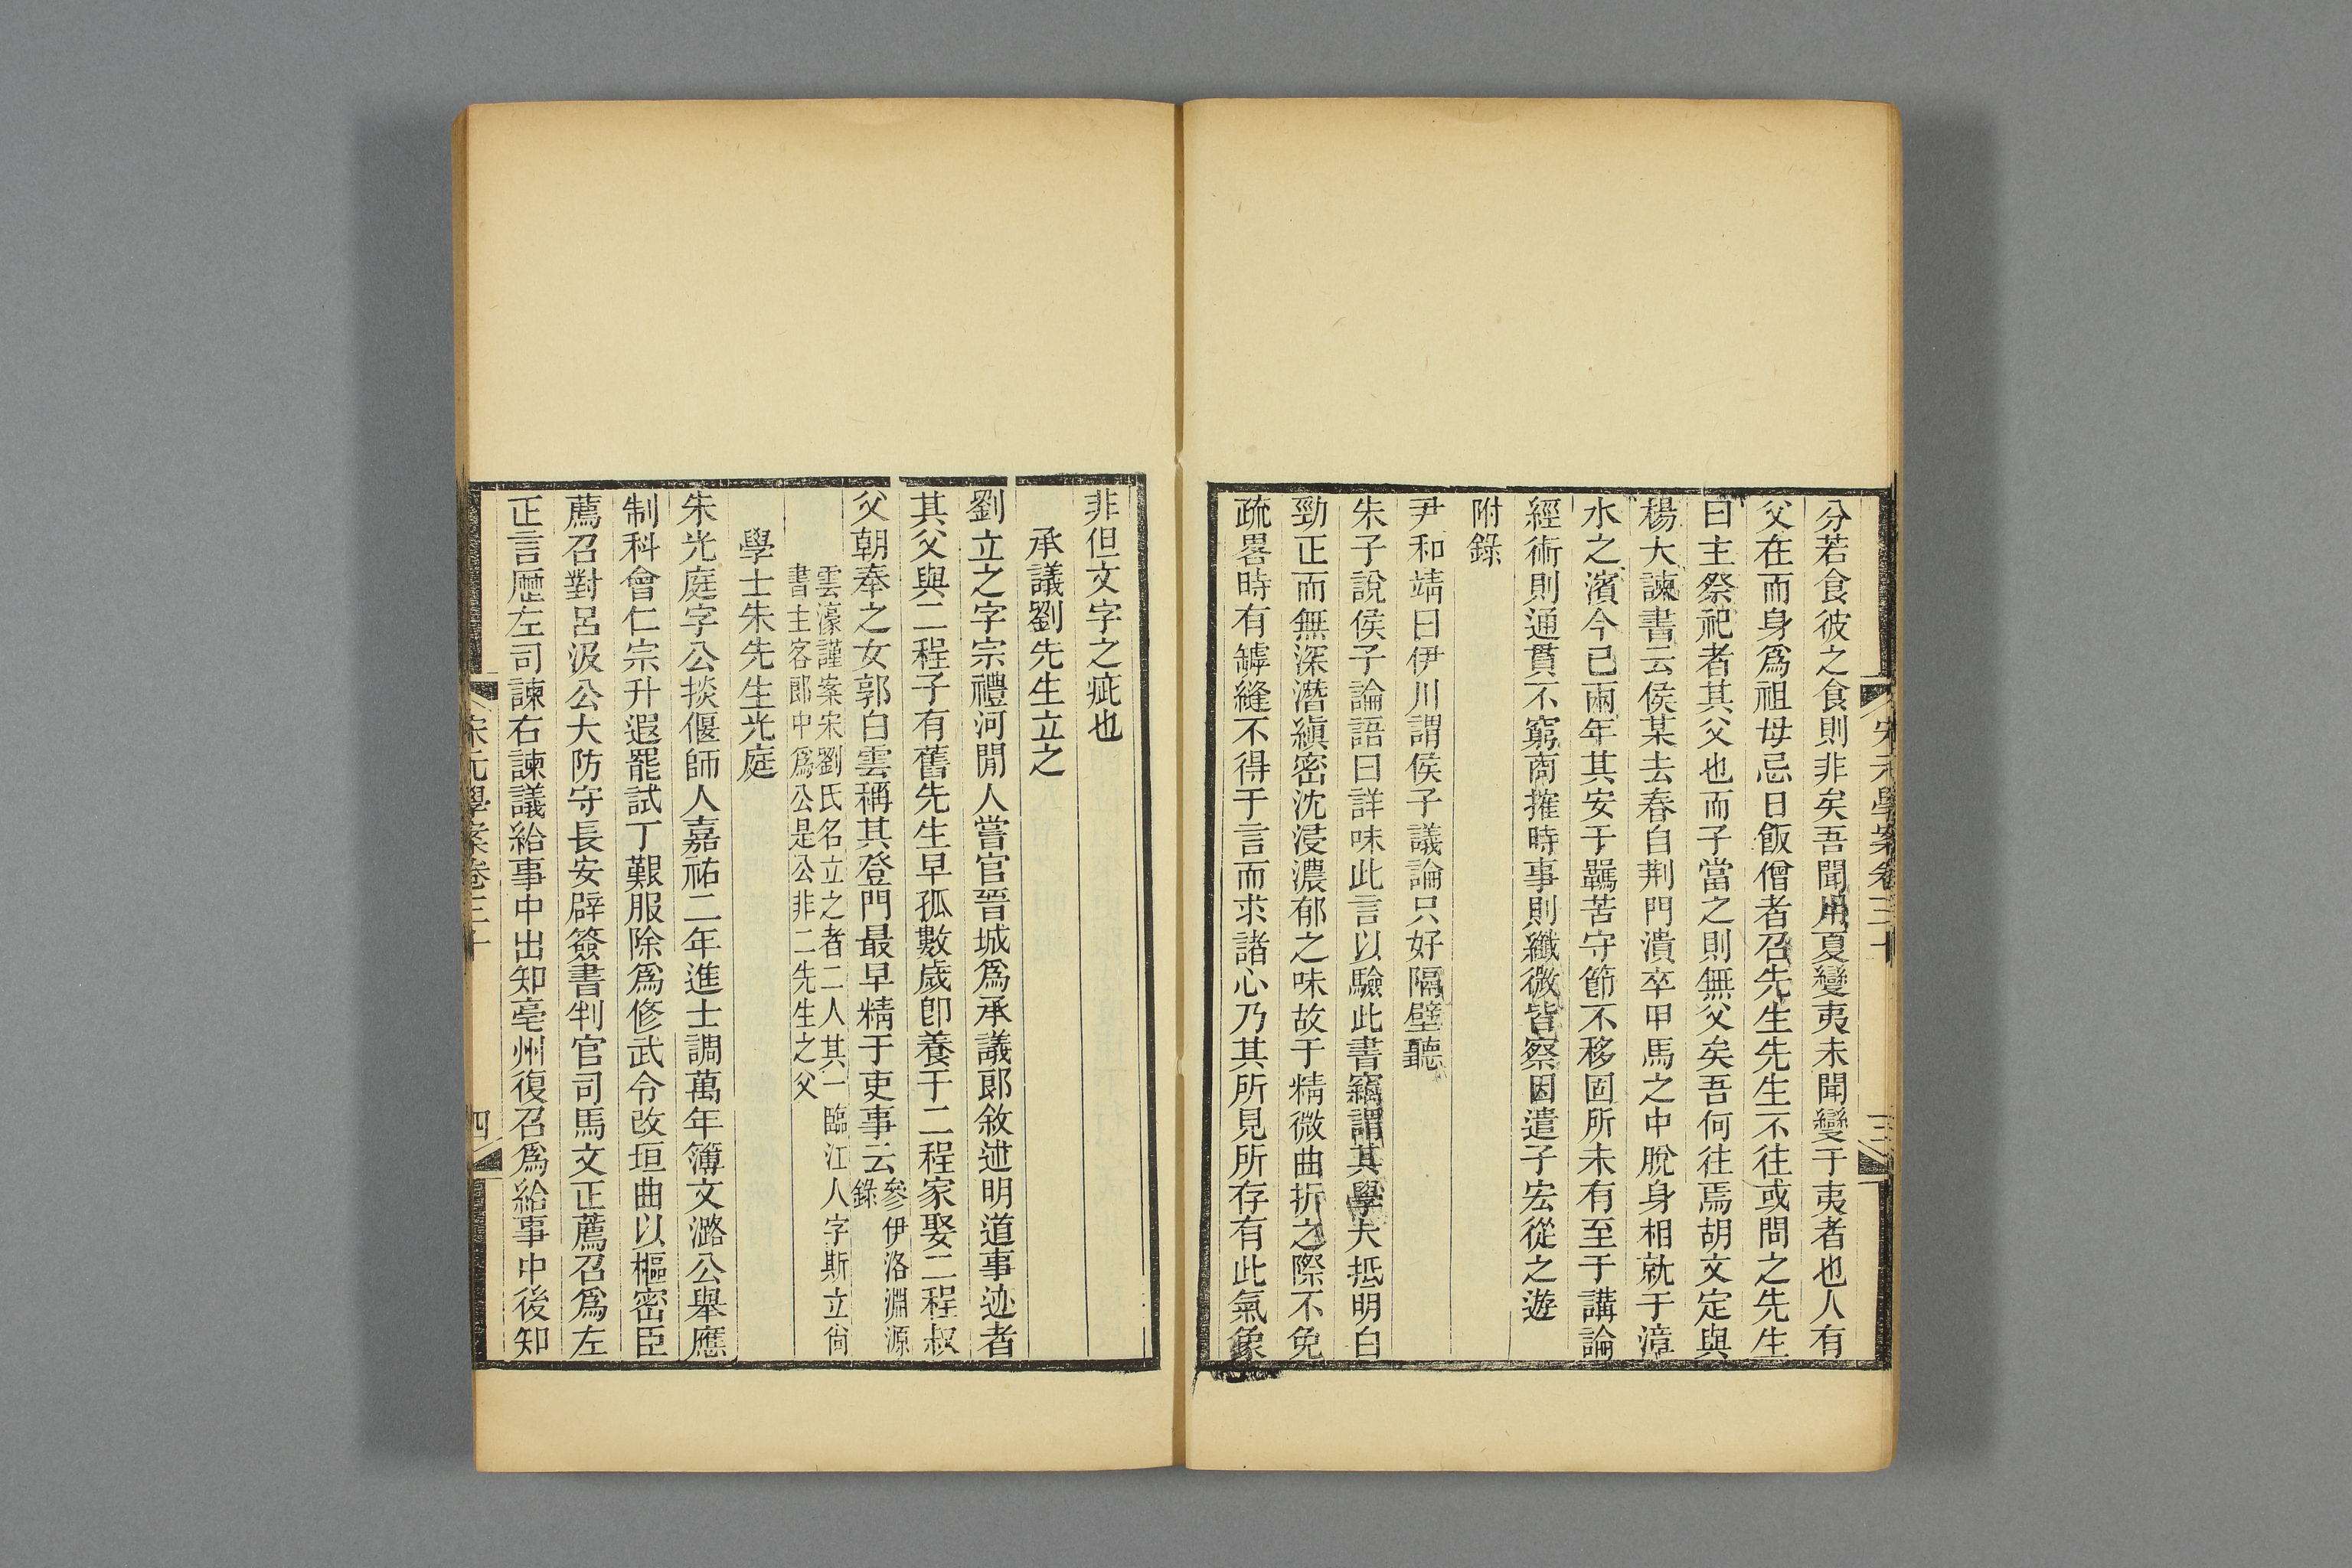 宋元學案卷三十
三
分若食彼之食則非矣吾聞用夏變夷未聞變于夷者也人有
父在而身爲祖母忌日飯僧者召先生先生不往或問之先生
曰主祭祀者其父也而子當之則無父矣吾何往焉胡文定與
楊大諫書云侯某去春自荆門潰卒甲馬之中脫身相就于漳
水之濱今已兩年其安于羈苦守節不移固所未有至于講論
經術則通貫不窮商搉時事則纖微皆察因遣子宏從之遊
附錄
尹和靖曰伊川謂侯子議論只好隔壁聽
朱子說侯子論語曰詳味此言以驗此書竊謂其學大抵明白
勁正而無深潛縝密沈浸濃郁之味故于精微曲折之際不免
疏畧時有罅縫不得于言而求諸心乃其所見所存有此氣象
非但文字之疵也
承議劉先生立之
劉立之字宗禮河閒人嘗官晉城爲承議郞敘述明道事迹者
其父與二程子有舊先生早孤數歲卽養于二程家娶二程叔
父朝奉之女郭白雲稱其登門最早精于吏事云參伊洛淵源
錄
雲濠謹案宋劉氏名立之者二人其一臨江人字斯立尙
書主客郞中爲公是公非二先生之父
學士朱先生光庭
朱光庭字公掞偃師人嘉祐二年進士調萬年簿文潞公舉應
制科會仁宗升遐罷試丁艱服除爲修武令改垣曲以樞密臣
薦召對呂汲公大防守長安辟簽書判官司馬文正薦召爲左
正言歷左司諫右諫議給事中出知亳州復召爲給事中後知
宋元學案卷三十
四